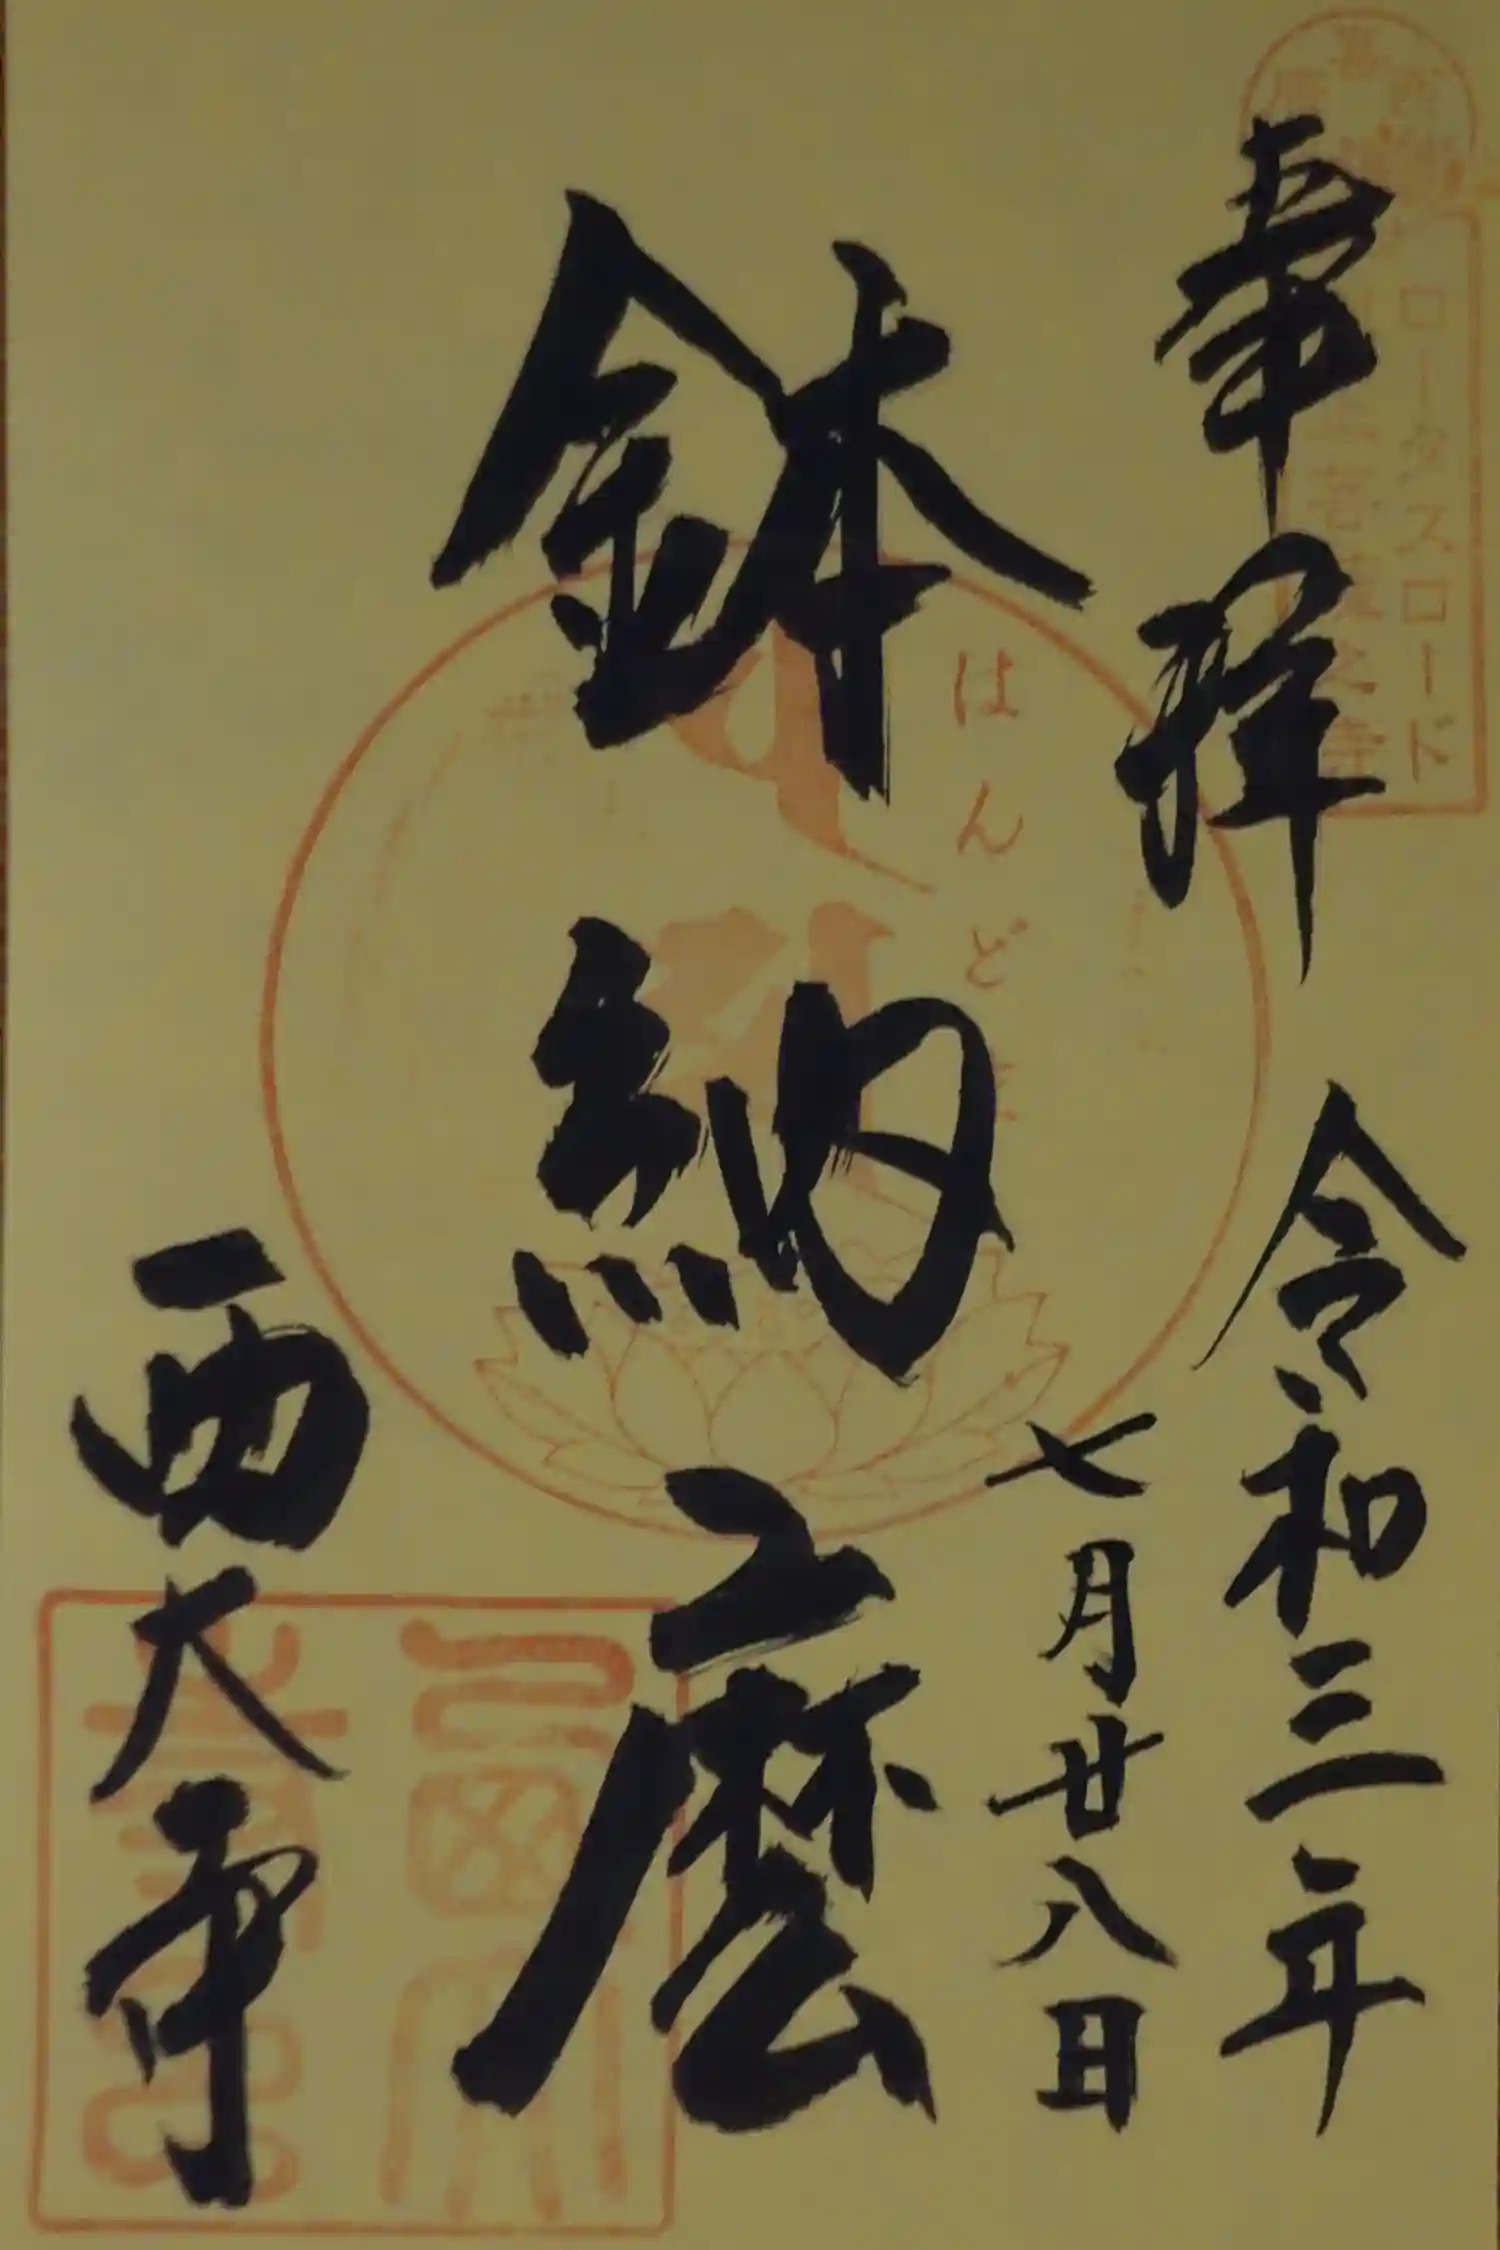 奉拝
令和三年
七月廿八日
鉢納麿
西大寺
ロータスロード
はんどま